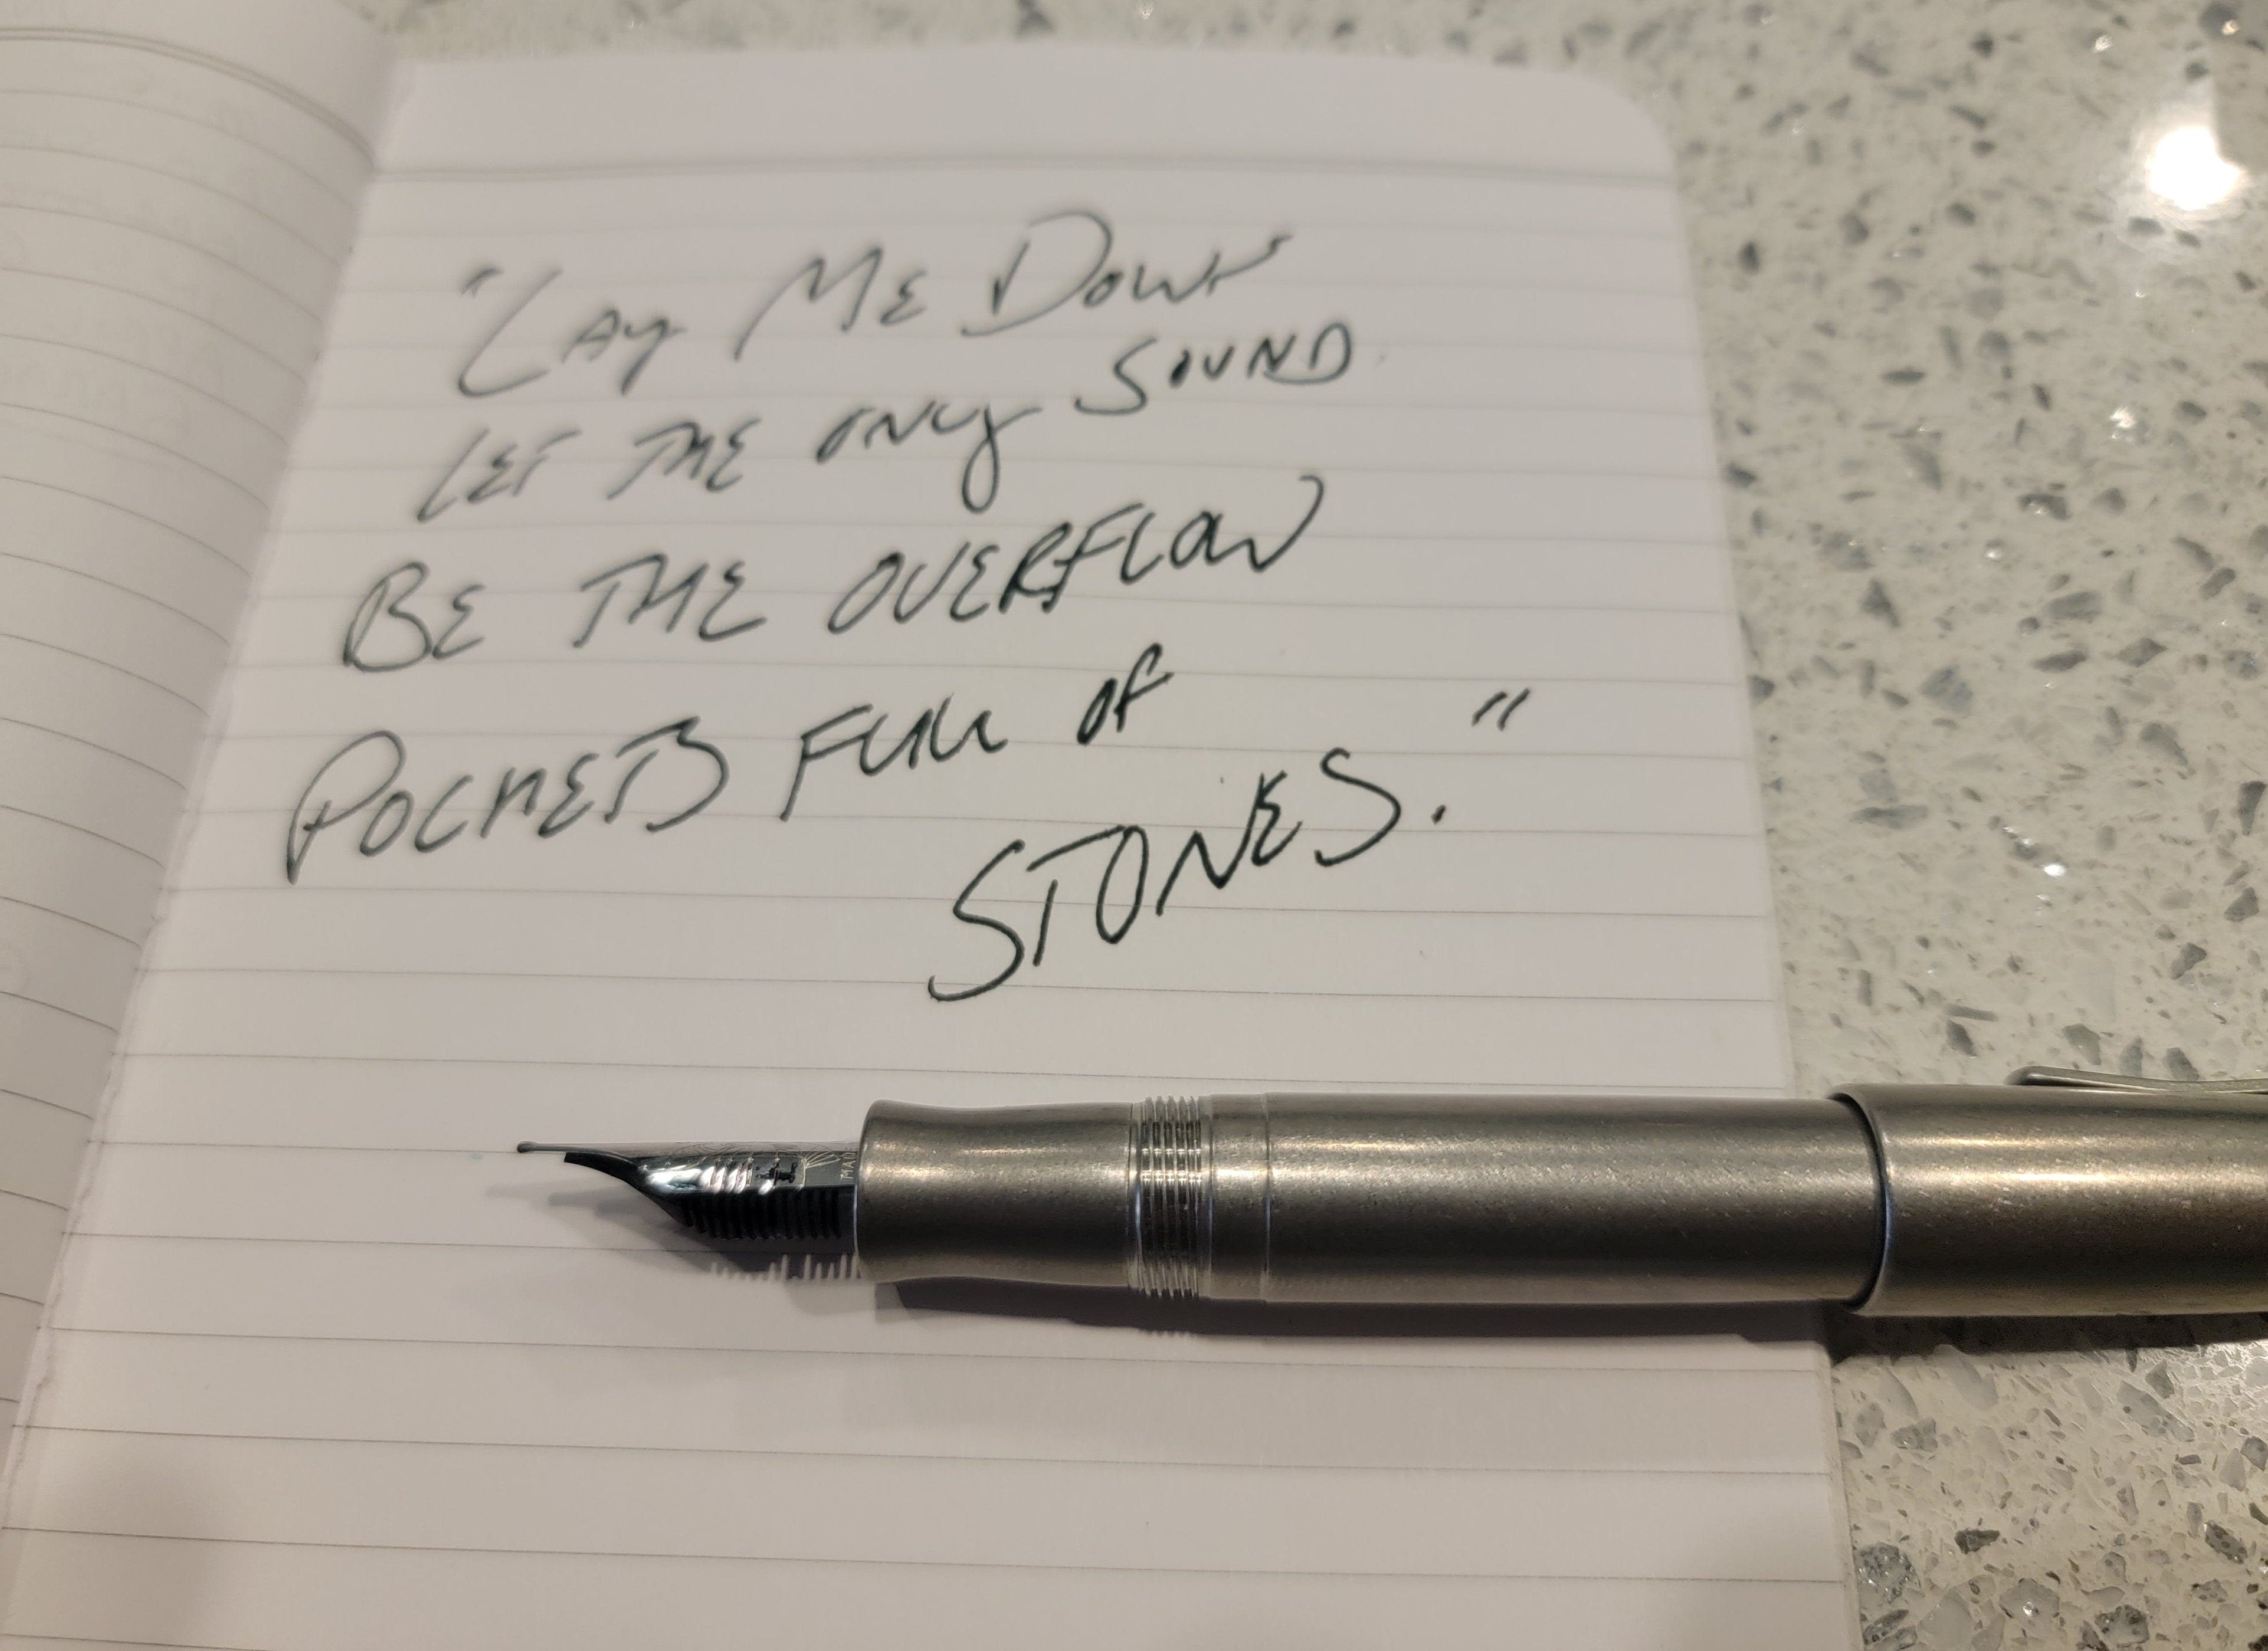 "Lay Me Down
LET THE ONLY SOUND
BE THE OVERFLOW
POCKETS FULL OF
STONES."